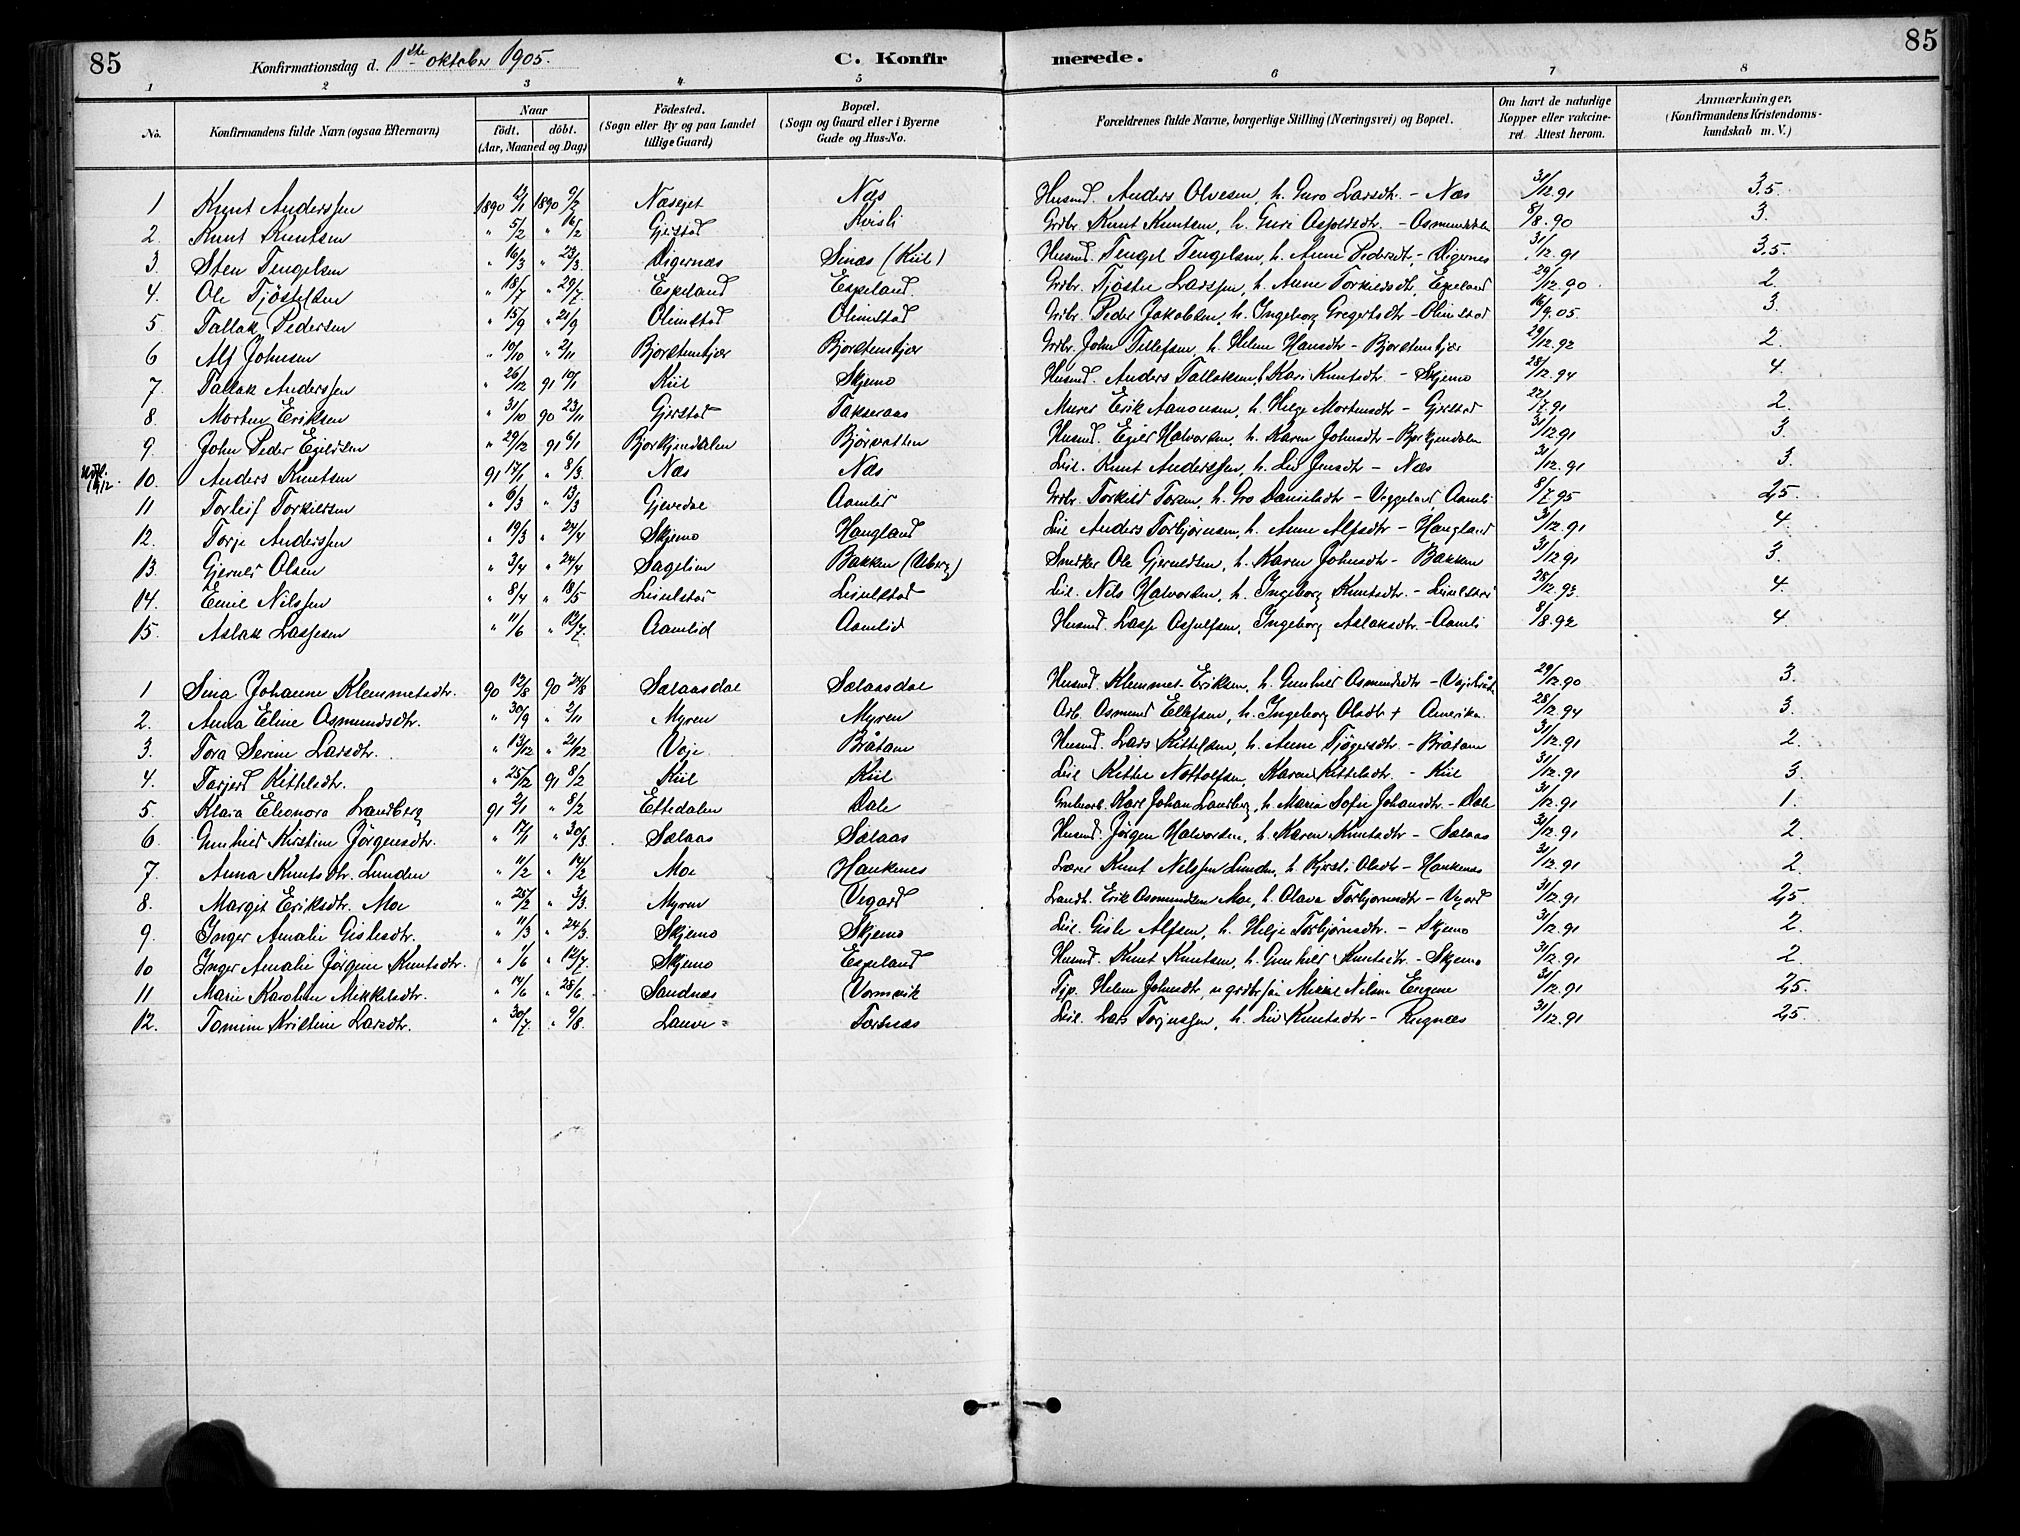 85 Konfirmationsdag d. 1ste oktober 1905. C. Konfirmerede. 85
1 2 3 4 5 6 7 8
No. Konfirmandens fulde Navn (ogsaa Efternavn) Naar födt. döbt. (Aar, Maaned og Dag) Födested. (Sogn eller By og paa Landet tillige Gaard) Bopæl. (Sogn og Gaard eller i Byerne Gade og Hus-No. Forældrenes fulde Navne, borgerlige Stilling (Næringsvei) og Bopæl. Om havt de naturlige Kopper eller vakcineret. Attest herom. Anmærkninger, (Konfirmandens Kristendomskundskab m. V.)
1 Knut Anderssen 1890 12/1 1890 9/2 Næsejet Næs Husmd. Anders Olvesen, h. Guro Larsdtr. - Næs 31/12.91 3.5
2. Knut Knutsen " 5/2 " 16/2 Gjerstad Kvisli Grdbr. Knut Knutsen, h. Guri - Osmundsdalen 8/8.90 3.
3. Sten Tengelsen " 16/3 " 23/3 Digernæs Sinæs (Kiil) Husmd. Tengel Tengelsen, h. Anne Pedersdt. - Digernes 31/12.91 3.5
4. Ole Tjöstelsen " 18/7 " 29/7 Espeland Espeland. Grdbr. Tjöstel Larssen, h. Anne Torkildsdt, Espeland 29/12.90 2.
5. Tallak Pedersen " 15/9 " 21/9 Olimstad Olimstad Grdbr. Peder Jakobsen, h. Ingeborg Gregersdtr - Olimstad 16/9.05 3
6 Alf Johnsen " 10/10 " 2/11 Bjorstemkjær Bjorstemkjær Grdbr. John Tellefsen, h. Helene Hansdtr - Bjorstemkjær 29/12.92 2.
7. Tallak Anderssen " 26/12 91 10/1 Kiil Skjemo Husmd. Anders Tallaksen, Kari Knutsdtr. - Skjemo 28/12.94 4.
8. Morten Eriksen " 31/10 90 23/11 Gjerstad Takseraas Murer Erik Aanonsen, h. Helge Mortensdtr - Gjerstad 22/7.91 2.
9. John Peder Egeldsen " 29/12 91 6/1 Bjorkjendalen Björvatten Husmd. Egeld Halvorsen, h. Karen Johnsdtr - Bjorkjendalen 31/12.91 3.
10. Anders Knutsen 91 17/1 " 8/3. Næs Næs Leil. Knut Anderssen, h. Liv Jensdtr - Næs 31/12.91 3.
11 Torleif Torkildsen " 6/3 " 13/3 Gjevedal Aamlid Grdbr. Torkild Torsen, h. Gro Danielsdtr - Veggeland, Aamli 8/7.95 2,5.
12. Torje Anderssen " 19/3 " 24/4 Skjemo Haugland Leil Anders Torbjörnsen, h. Anne Alfsdtr - Haugland 31/12.91 4
13. Gjeruld Olsen " 3/4 " 24/4 Sagelien Bakken (Aberg) Snedker Ole Gjeruldsen, h. Karen Johnsdtr - Bakken 31/12.91 3.
14. Emil Nilssen " 8/4 " 18/5 Leiulstad Leiulstad Leil. Nils Halvorsen, h. Ingeborg Knutsdtr. - Leiulstad 28/12.93 4.
15. Aslak Lassesen " 11/6 " 12/7. Aamlid Aamlid Husmd. Lasse Asjulfsen, Ingeborg Aslaksdtr. - Aamli 8/8.92 4.
1 Sina Johanne Klemmetsdtr. 90 12/8 90 24/8 Sælaasdal Sælaasdal Husmd. Klemmet Eriksen, h. Gunhild Osmundsdtr - 29/12.90 3.
2. Anna Eline Osmundsdtr. " 30/9 " 2/11 Myren Myren Arb. Osmund Ellefsen, h. Ingeborg Olsdtr + Amerika. 28/12.94 3.
3. Tora Serine Larsdtr. " 13/12 " 21/12 Voje Bråtane Husmd. Lars Kittelsen, h. Anne Tjögersdtr. - Bråtane 31/12.91 2.
4. Torjert Kittelsdtr. " 25/12 91 8/2 Kiil Kiil Leil. Kittel Nottolfsen, Karen Kittelsdtr. - Kiil 31/12.91 3.
5. Klara Eleonora Landberg 91 2/1 " 8/2 Ettedalen Dale Grubearb. Karl Johan Landberg, h. Maria Sofie Johansdtr - Dale 31/12.91 1.
6. Gunhild Kirstine Jörgensdtr. " 17/1 " 30/3. Sælaas Sælaas Husmd. Jörgen Halvorsen, h. Karen Knutsdtr - Sælaas 31/12.91 2
7. Anna Knutsdtr. Lunden " 11/2 " 14/2 Moe Haukenes Lærer Knut Nilssen Lunden, h. Kjersti Olsdtr - Haukenes 31/12.91 2.
8. Margit Eriksdtr. Moe " 25/2 " 3/3. Myren Vegard Landh. Erik Osmundsen Moe, h. Olava Torbjörnsdtr - Vegard 31/12.91 2,5
9. Inger Amalie Gislesdtr. " 11/3 " 24/3. Skjemo Skjemo Leil. Gisle Alfsen, h. Helje Torbjörnsdtr. - Skjemo 31/12.91 2.
10 Inger Amalie Jörgine Knutsdtr. " 1/6 " 12/7. Skjemo Espeland Husmd. Knut Knutsen, h. Gunhild Knutsdtr - Skjemo 31/12.91 2.
11 Marie Karoline Mikkelsdtr. " 14/6 " 28/6 Sandnæs Vormvik Tjp. Helene Johnsdtr, u grdbrsön Mikkel Nilsen Eugene 31/12.91 2,5.
12. Tomine Kristine Larsdtr. " 30/7 " 9/8. Lauve Torsnæs Leil. Lars Torjussen, h. Liv Knutsdtr - Rugnæs 31/12.91 2,5.